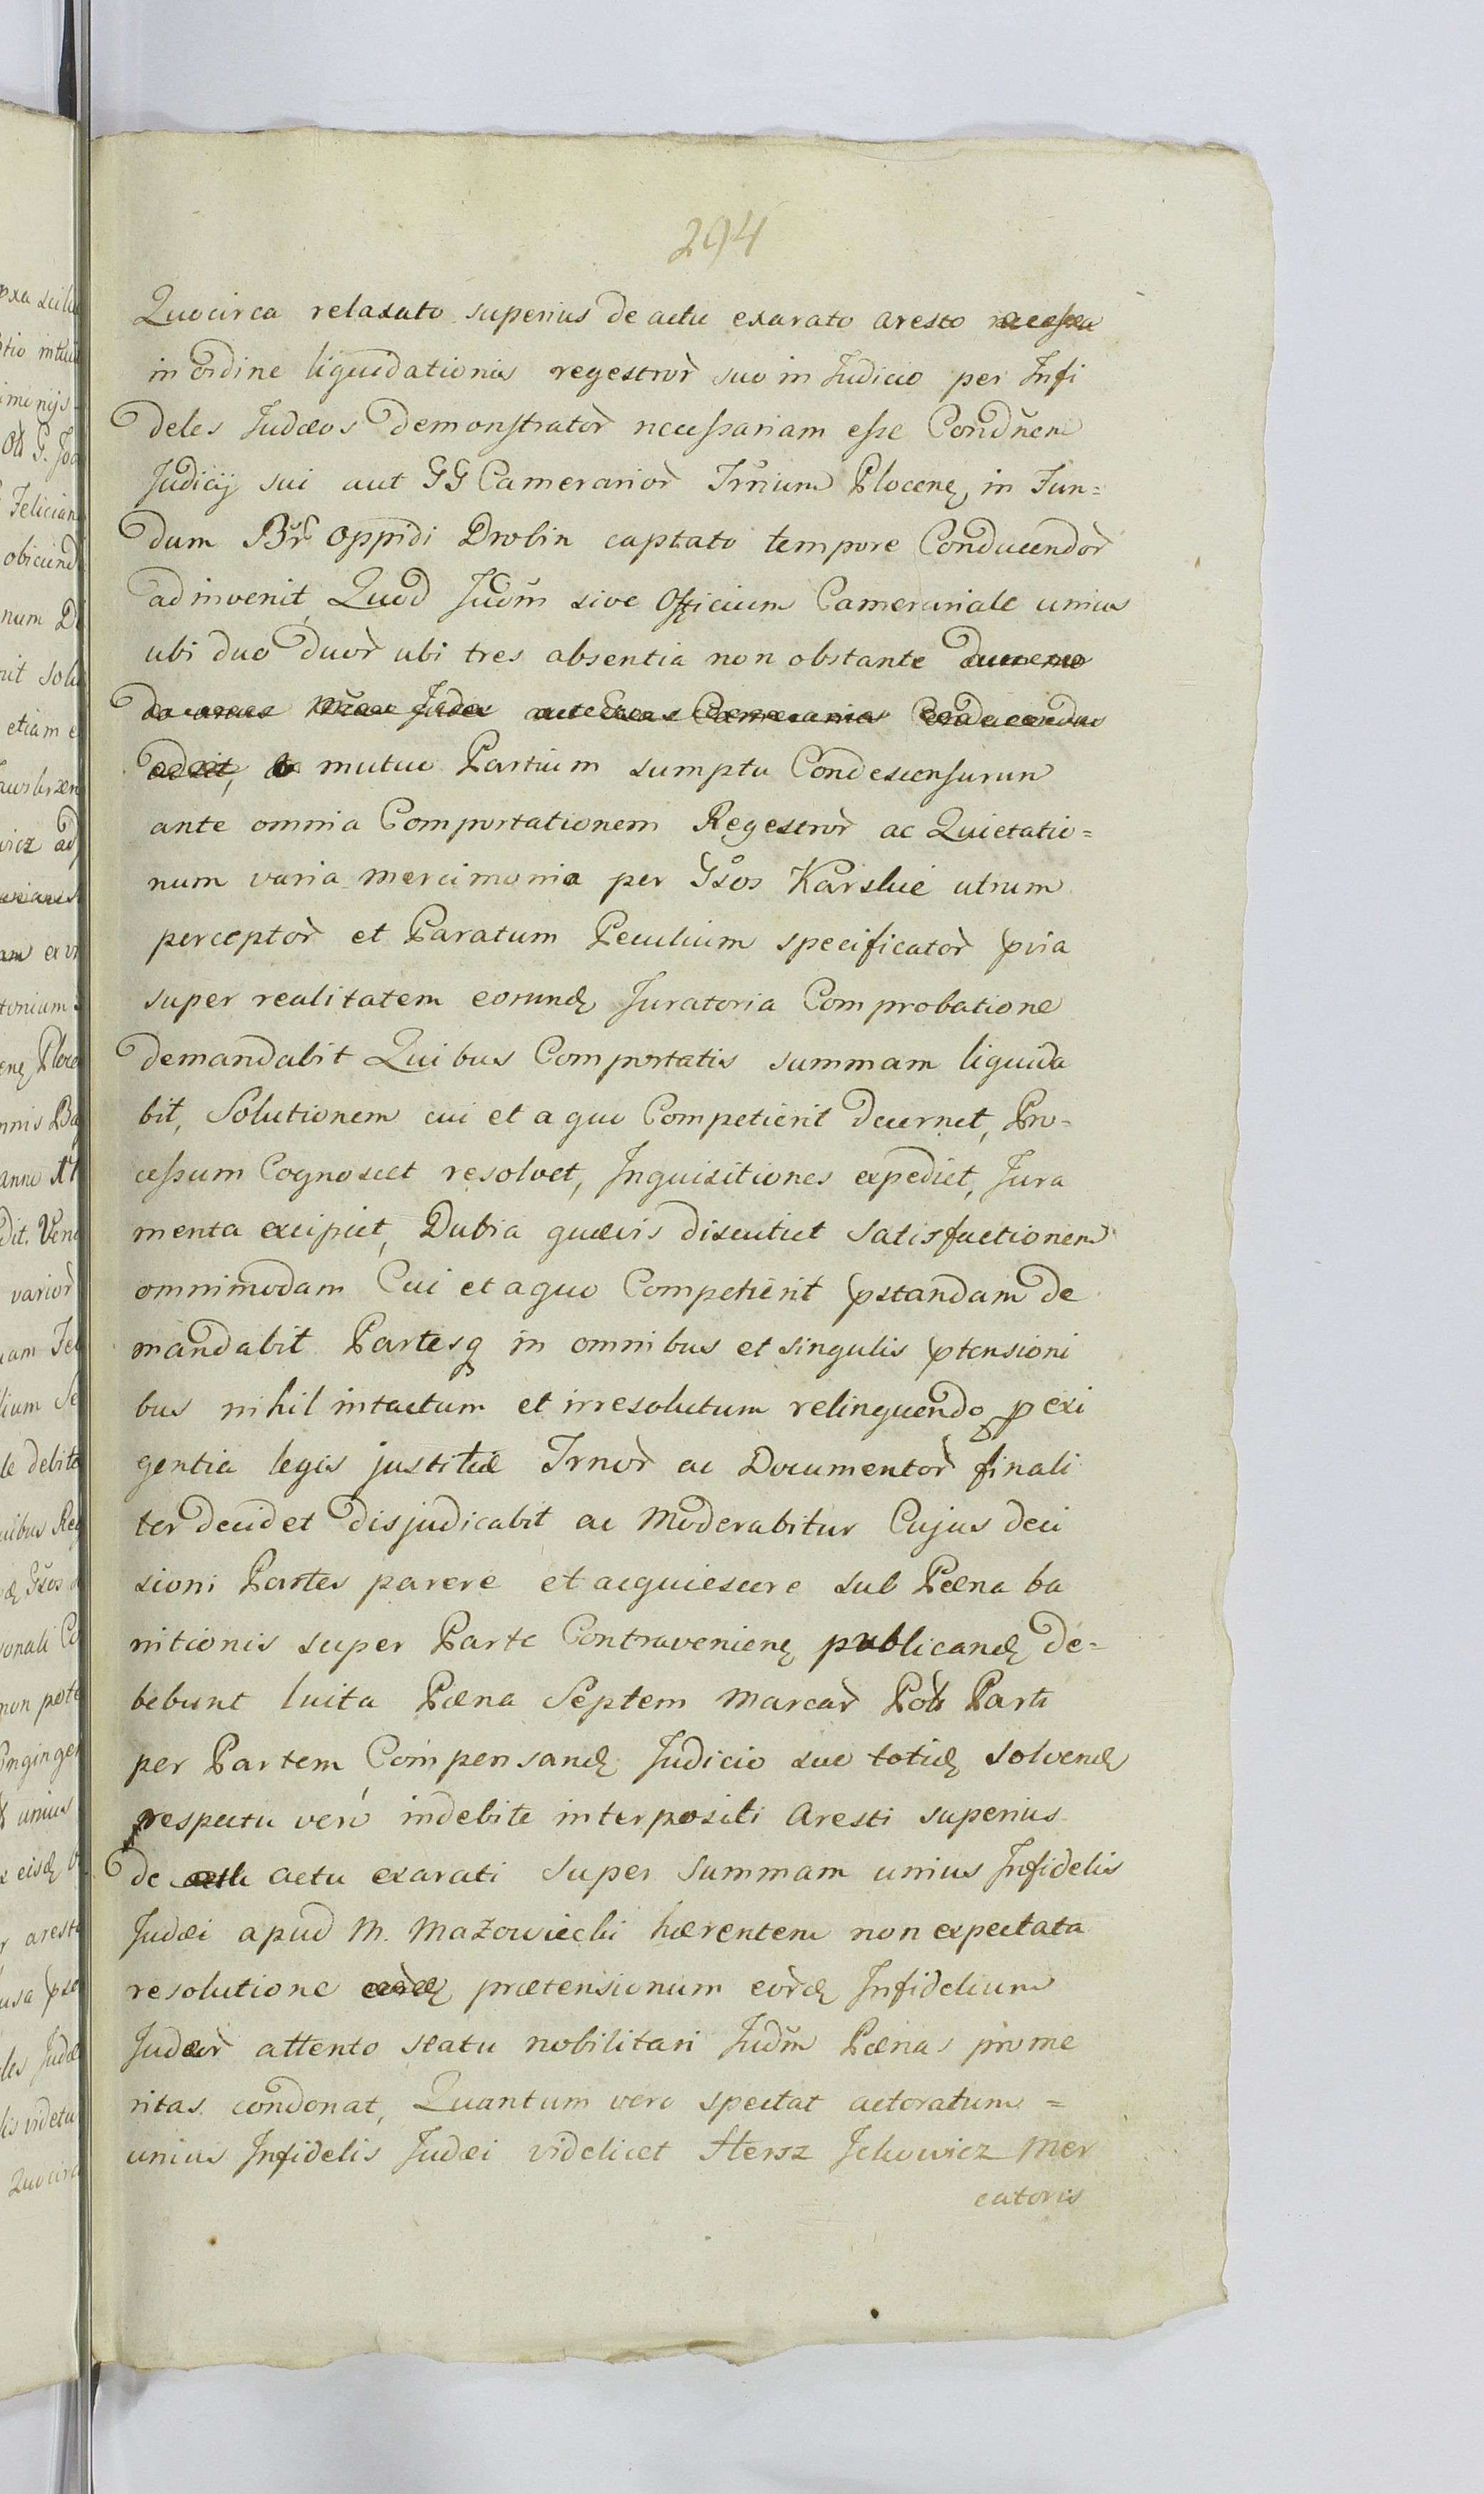 294
Quocirca relaxato superius de actu exarato aresto
in ordine liquidationis regestror̀ suo in Judicio per Infi
deles Judæos demonstrator̀ necessariam esse Condn̄em
Judicij sui aut GG Camerarior̀ Trn̄ium Plocenȩ, in Fun=
dum Br̄ Oppidi Drobin captato tempore Conducendor̀
ad invenit, Quod Judm̄ sive Officium Camerariale unius
ubi duo duor̀ ubi tres absentia non obstante
mutuo Partium sumptu Condescensurum
ante omnia Comportationem Regestror̀ ac Quietatio=
num varia mercimonia per Gs̄os Karskie utrum
perceptor̀ et Paratum Peculium specificator̀ pvia
super realitatem eorundȩ Juratoria Comprobatione
demandabit Quibus Comportatis summam liquida
bit, Solutionem cui et a quo Competierit decernet, Pro=
cessum Cognoscet resolvet, Inquisitiones expediet, Jura
menta excipiet, Dubia quævis discutiet satisfactionem
omnimodam Cui et a quo Competierit pstandam de
mandabit Partesq in omnibus et singulis ptensioni
bus nihil intactum et irresolutum relinquendo p exi
gentia legis justitiæ Trnor̀ ac Documentor̀ finali
ter decidet disjudicabit ac Moderabitur Cujus deci
sioni Partes parere et acquiescere sub Pæna ba
nitionis super Parte Contravenienȩ publicandȩ de=
bebunt luita Pæna Septem Marcar̀ Pol̀ Parti
per Partem Compensandȩ Judicio suo totidȩ solvendȩ
respectu vero indebite interpositi Aresti superius
de actu exarati super Summam unius Infidelis
Judæi apud M. Mazowiecki hærentem non expectata
resolutione prætensionum eor̀dȩ Infidelium
Judæor̀ attento statu nobilitari Judm̄ Pænas prome
ritas condonat, Quantum vero spectat actoratum =
unius Infidelis Judæi videlicet Hersz Jckowicz Mer
catoris